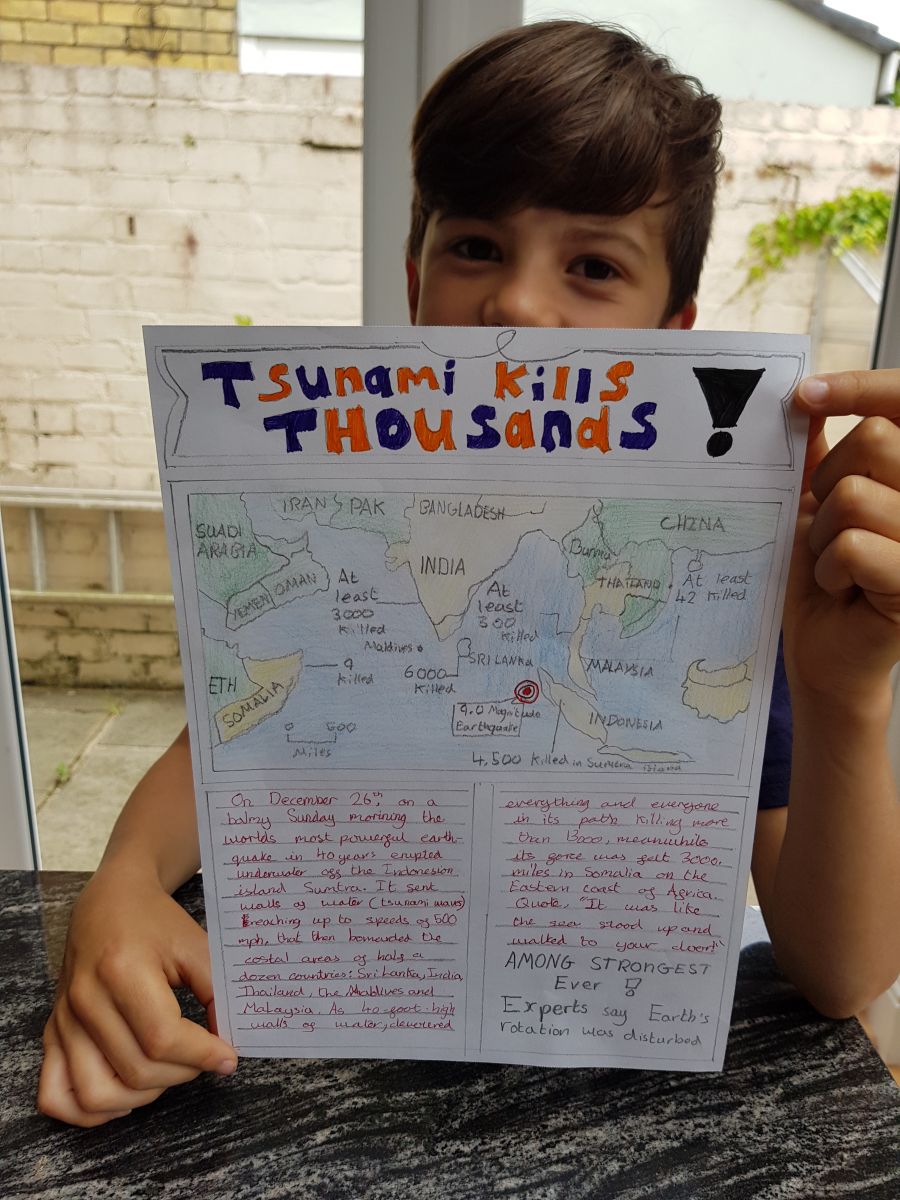 Tsunami Kills
THOUSANDS !
IRAN
PAK
BANGLADESH
CHINA
SUADI
ARABIA
YEMEN
OMAN
INDIA
Burma
THAILAND
At
least
3000
killed
At
least
300
killed
At least
42 killed
Maldives
SRI LANKA
6000
killed
9
killed
ETH
SOMALIA
MALAYSIA
INDONESIA
9.0 Magnitude
Earthquake
0 600
Miles
4,500 killed in Sumtra island
On December 26th, on a
balmy Sunday morining the
worlds most powerful earth-
quake in 40 years erupted
underwater off the Indonesion
island Sumtra. It sent
walls of water (tsunami waves)
reaching up to speeds of 500
mph, that then bomeuded the
costal areas of half a
dozen countries: Sri Lanka, India,
Thailand, the Maldives and
Malaysia. As 40-foot-high
walls of water, devered
everything and everyone
in its path killing more
than 13000, meanwhile
its force was felt 3000,
miles in Somalia on the
Eastern coast of Africa.
Quote, "It was like
the sea stood up and
walked to your door!"
AMONG STRONGEST
Ever !?
Experts say Earth's
rotation was disturbed